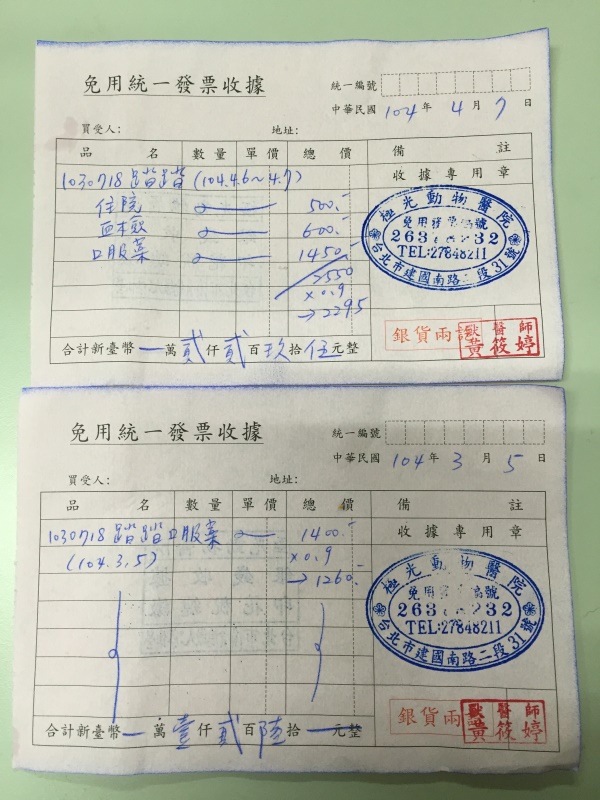 免用統一發票收據
統一編號
中華民國 104 年 4 月 7 日
買受人： 地址：
品 名 數量 單價 總 價 備 註
1030718 踏踏 (104.4.6~4.7) 收據專用章
住院 500.-
600.-
口服藥 1450.-
2550
×0.9
→2295
極光動物醫院
免用發票 號
TEL:27848211
台北市建國南路二段31號
銀貨兩訖
獸醫師
黃筱婷
合計新臺幣 一 萬 貳 仟 貳 百 玖 拾 伍 元整
免用統一發票收據
統一編號
中華民國 104 年 3 月 5 日
買受人： 地址：
品 名 數量 單價 總 價 備 註
1030718 踏踏 口服藥 1400.- 收據專用章
(104.3.5) ×0.9
→1260.-
極光動物醫院
免用 號
TEL:27848211
台北市建國南路二段31號
銀貨兩
獸醫師
黃筱婷
合計新臺幣 一 萬 壹 仟 貳 百 陸 拾 一 元整